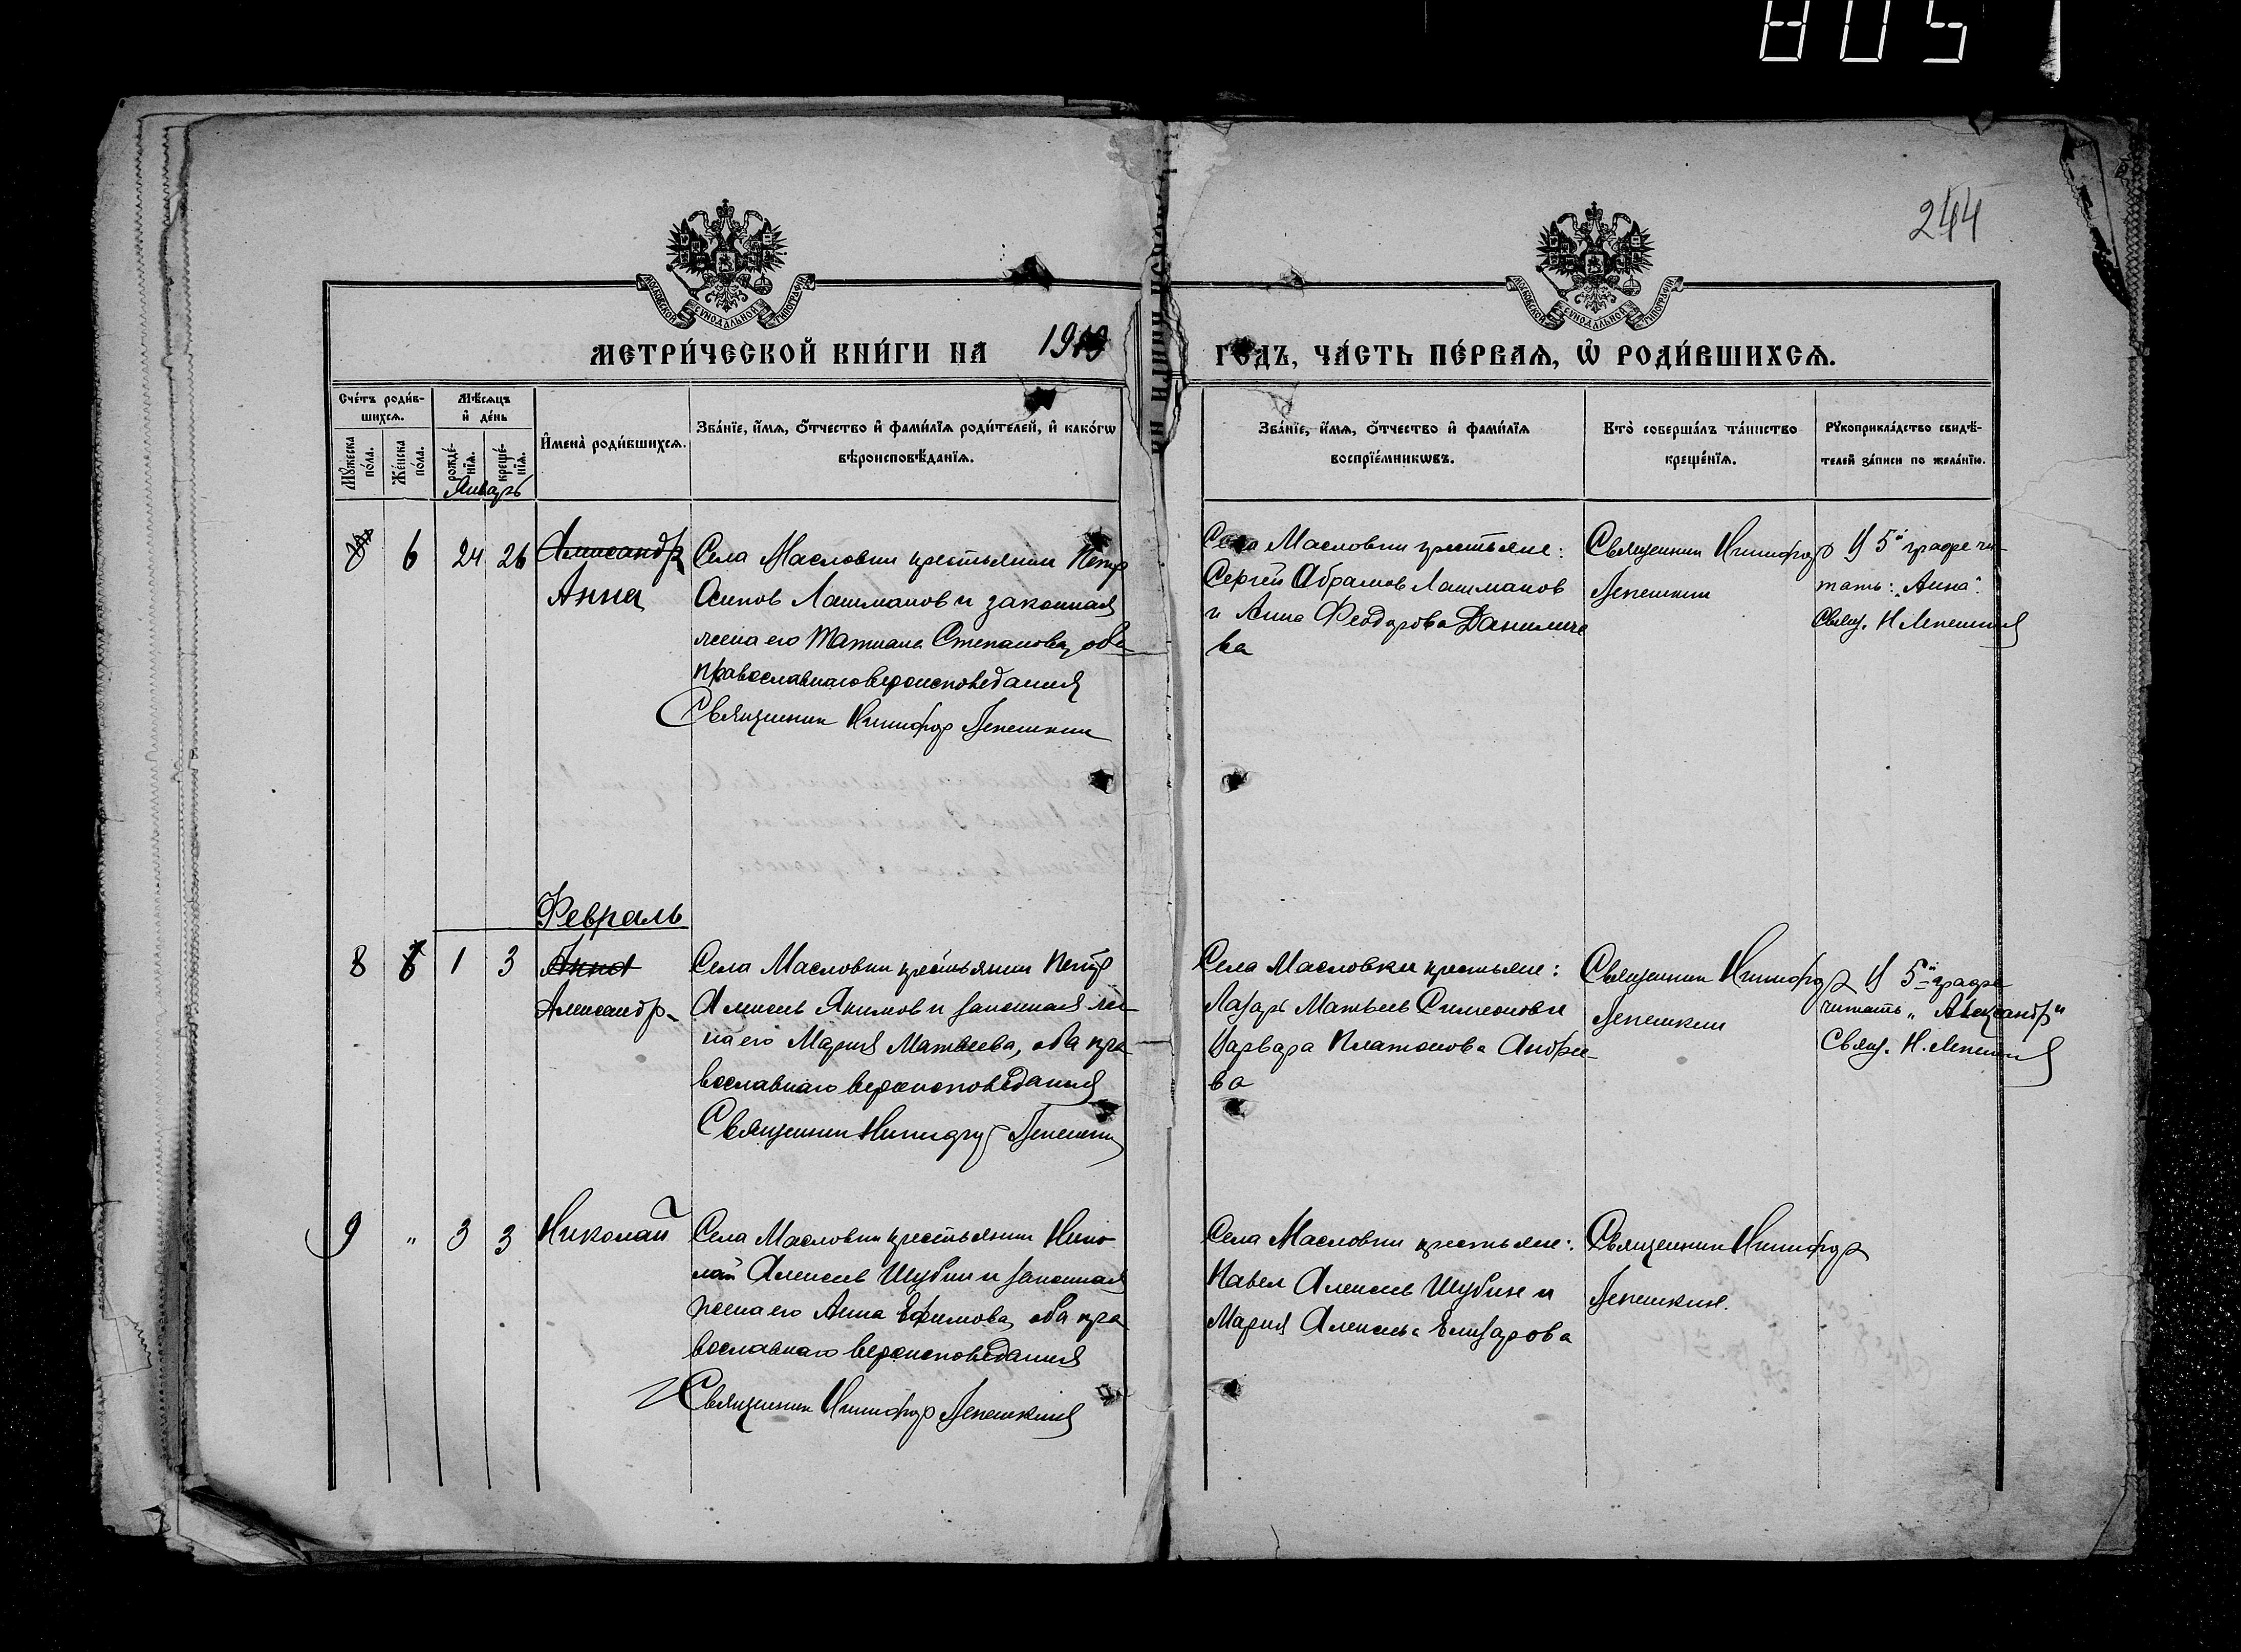 805
244
МОСКОВСКОЙ СУНОДАЛЬНОЙ ТИПОГРАФІИ
МОСКОВСКОЙ СУНОДАЛЬНОЙ ТИПОГРАФІИ
МЕТРИ́ЧЕСКОЙ КНИ́ГИ НА 19
ГОДЪ, ЧА́СТЬ ПЕ́РВАЯ, Ѡ҆ РОДИ́ВШИХСЯ.
Сче́тъ роди́в-
шихся.
Мѣ́сяцъ
и҆ де́нь
Мꙋ́жеска
по́ла.
Же́нска
по́ла.
рожде́-
нїя.
креще́-
нїя.
И҆мена̀ роди́вшихся.
Зва́нїе, и҆́мя, ѻ҆́тчество и҆ фами́лїя роди́телей, и҆ како́гѡ
вѣроисповѣ́данїя.
Зва́нїе, и҆́мя, ѻ҆́тчество и҆ фами́лїя
воспрїе́мникѡвъ.
Кто̀ соверша́лъ та́инство
креще́нїя.
Рꙋкоприкла́дство свидѣ́-
телей за́писи по жела́нїю.
Январь
6 24 26 Александр
Анна
Села Масловки крестьянин Петр
Осипов Лашманов и законная
жена его Татиана Степанова, оба
православнаго вероисповедания
Священник Никифор Лепешкин
Села Масловки крестьяне:
Сергей Абрамов Лашманов
и Анна Феодорова Даниличе
ва
Священник Никифор
Лепешкин
У 5й графе чи-
тать: "Анна".
Свящ. Н Лепешкин
Февраль
8 1 3 Анна
Александр
Села Масловки крестьянин Петр
Алексеев Якимов и законная же-
на его Мария Матвеева, оба пра
вославнаго вероисповедания
Священник Никифор Лепешкин
Села Масловки крестьяне:
Лазарь Матвеев Симеонов и
Варвара Платонова Андрее-
ва
Священник Никифор
Лепешкин
У 5й графе
читать "Александр"
Свящ. Н. Лепешкин
9 " 3 3 Николай
Села Масловки крестьянин Нико
лай Алексеев Шубин и законная
жена его Анна Ефимова, оба пра
вославнаго вероисповедания
Священник Никифор Лепешкин
Села Масловки крестьяне:
Павел Алексеев Шубин и
Мария Алексеева Елизарова
Священник Никифор
Лепешкин.